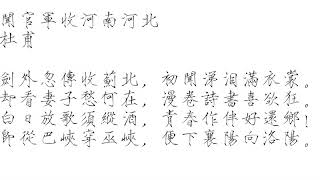 聞官軍收河南河北
杜甫
劍外忽傳收薊北，初聞涕淚滿衣裳。
却看妻子愁何在，漫卷詩書喜欲狂。
白日放歌須縱酒，青春作伴好還鄉！
即從巴峽穿巫峽，便下襄陽向洛陽。